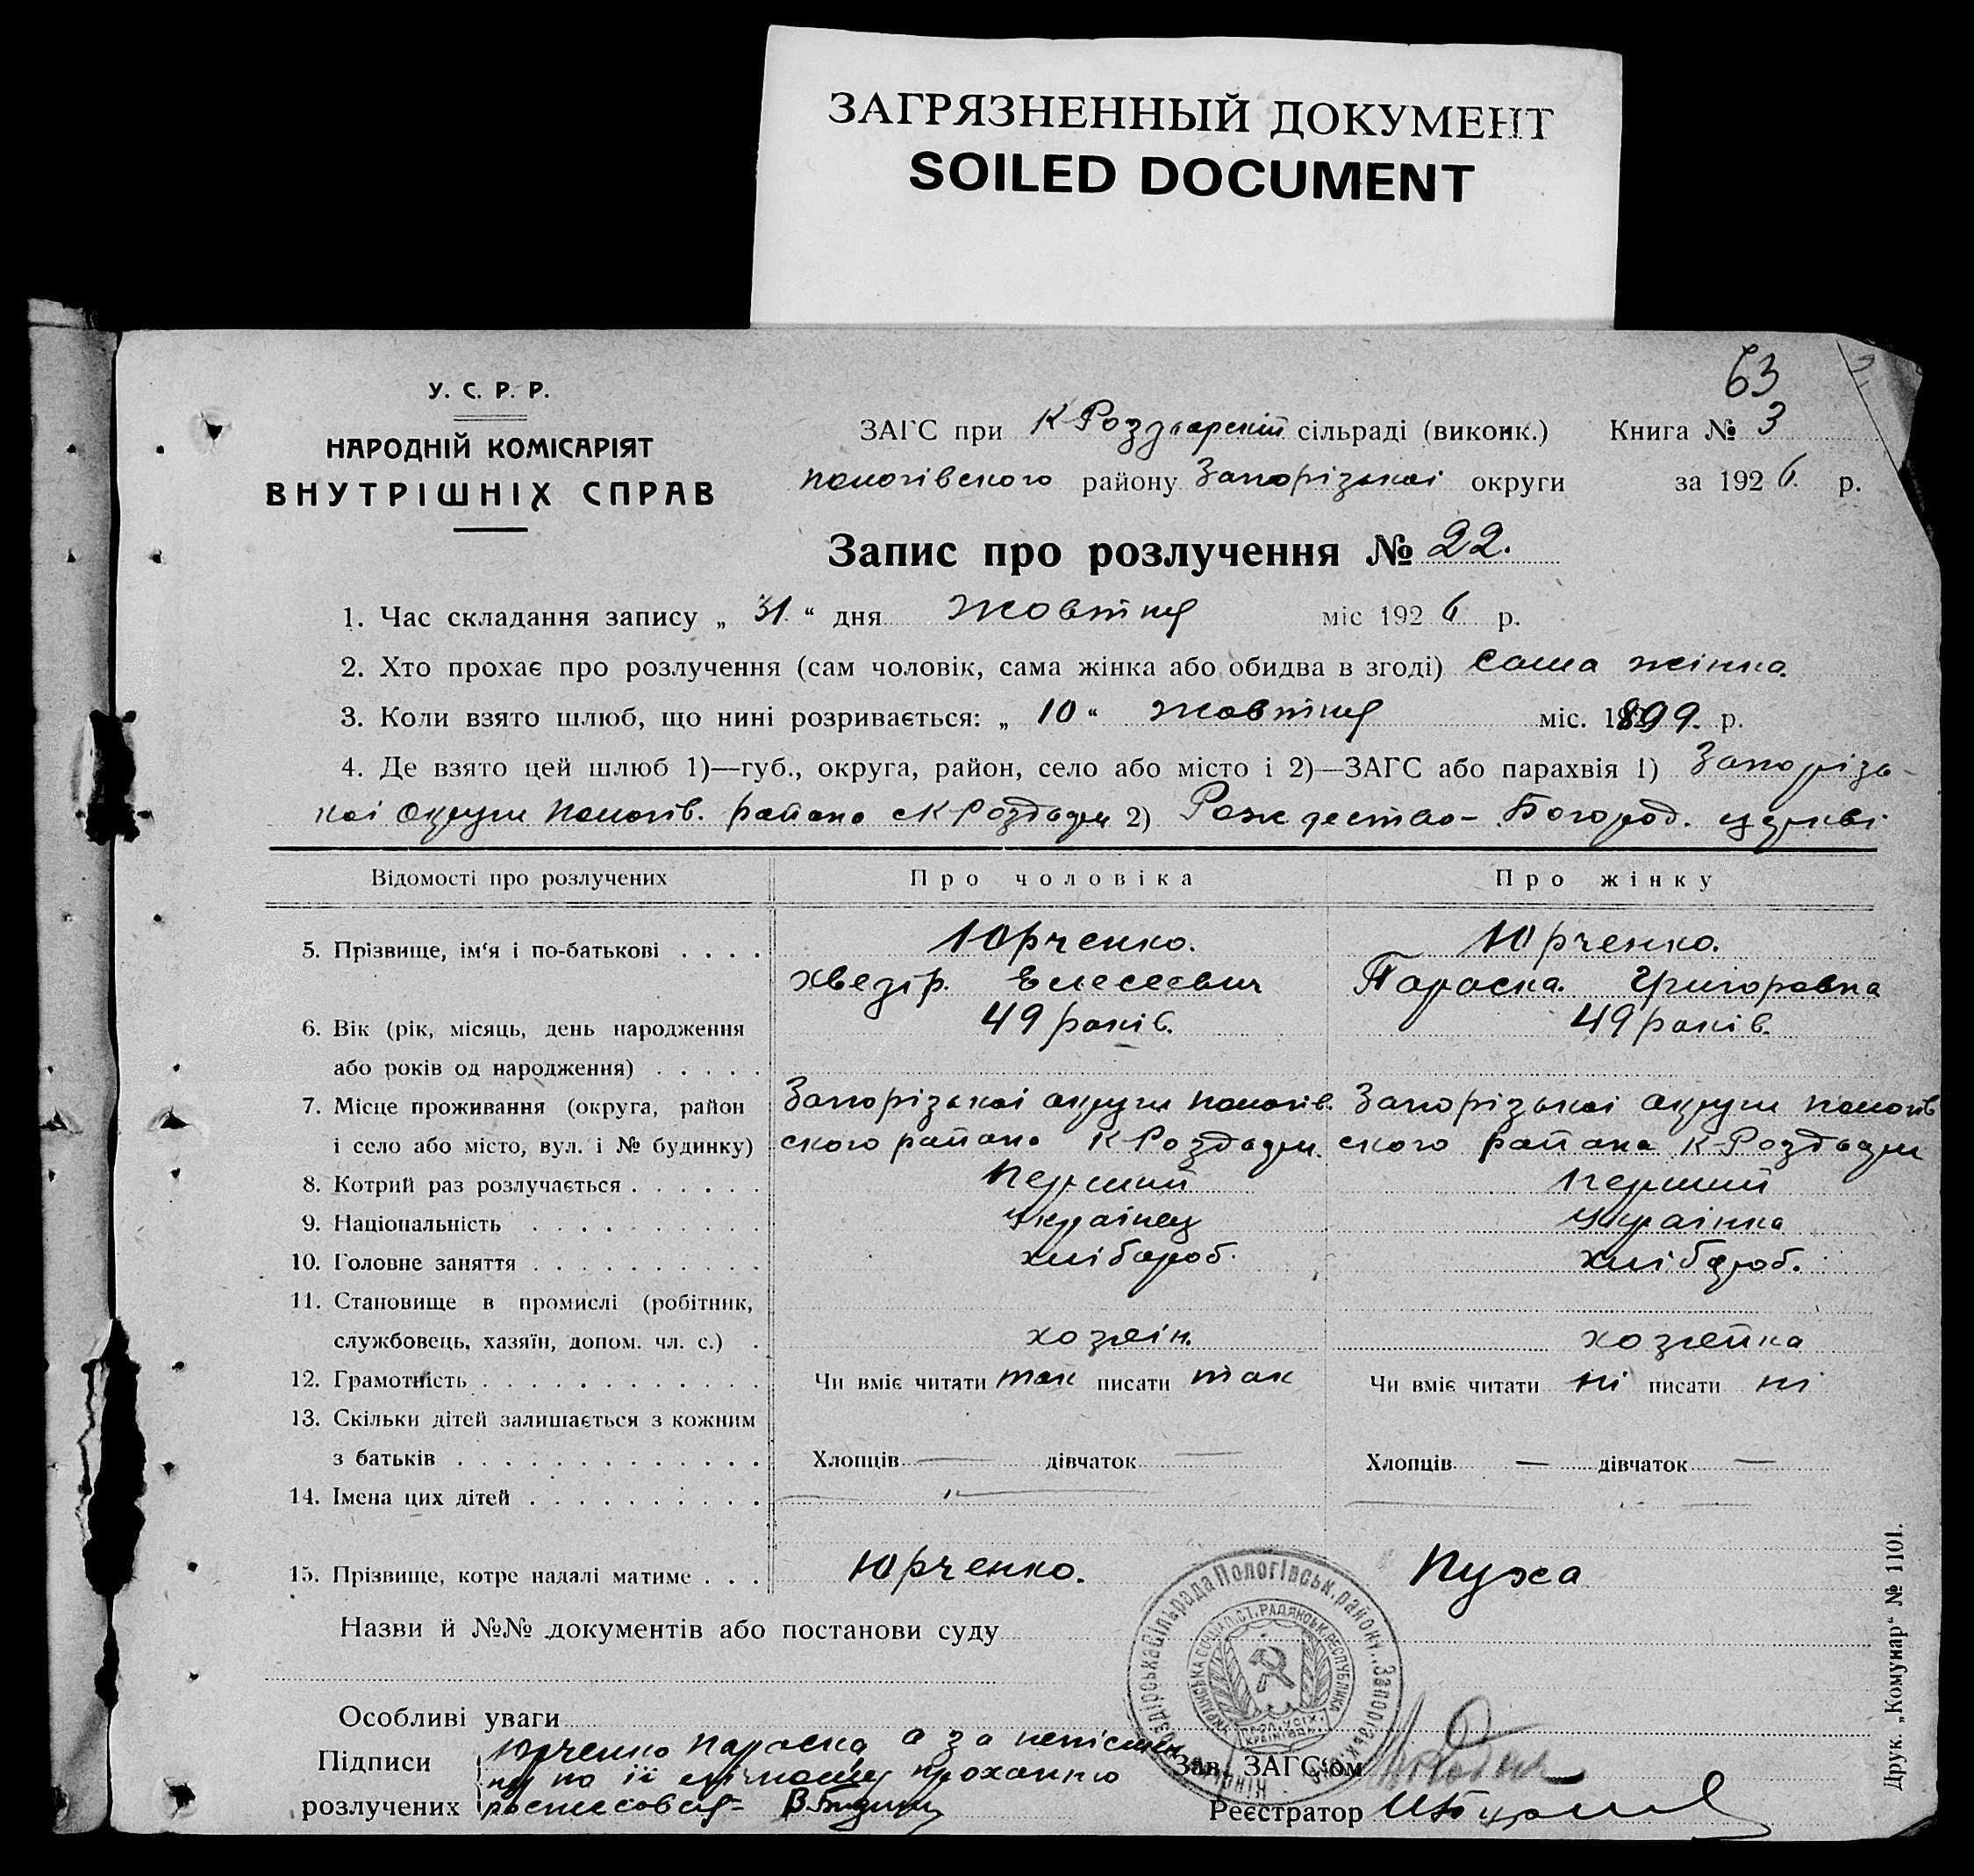 ЗАГРЯЗНЕННЫЙ ДОКУМЕНТ
SOILED DOCUMENT
63
У. С. Р. Р.
НАРОДНІЙ КОМІСАРІЯТ
ВНУТРІШНІХ СПРАВ
ЗАГС при К-Роздорский сільраді (виконк.) Книга № 3
пологівского району Запорізькоі округи за 1926 р.
Запис про розлучення № 22.
1. Час складання запису „ 31 “ дня жовтня міс 1926 р.
2. Хто прохає про розлучення (сам чоловік, сама жінка або обидва в згоді) сама жінка.
3. Коли взято шлюб, що нині розривається: „ 10 “ жовтня міс. 1899. р.
4. Де взято цей шлюб 1)—губ., округа, район, село або місто і 2)—ЗАГС або парахвія 1) Запорізь-
коі округи пологів. района с К-Роздори 2) Рождество-Богород. церкві
Відомості про розлучених Про чоловіка Про жінку
5. Прізвище, ім‘я і по-батькові . . . . Юрченко. Юрченко.
Хведір. Елесеевич Параска. Григоровна
6. Вік (рік, місяць, день народження 49 років. 49 років.
або років од народження) . . . . .
7. Місце проживання (округа, район Запорізькоі округи пологів. Запорізькоі округи пологів
і село або місто, вул. і № будинку) ского района К-Роздори. ского района К-Роздори
8. Котрий раз розлучається . . . . . . перший перший
9. Національність . . . . . . . . . Українец Українка
10. Головне заняття . . . . . . . . . . хлібороб. хлібороб.
11. Становище в промислі (робітник,
службовець, хазяїн, допом. чл. с.) . хозяін. хозяйка
12. Грамотність . . . . . . . . . . . . Чи вміє читати так писати так Чи вміє читати ні писати ні
13. Скільки дітей залишається з кожним
з батьків . . . . . . . . . . . . . Хлопців — дівчаток — Хлопців — дівчаток —
14. Імена цих дітей . . . . . . . . . .
15. Прізвище, котре надалі матиме . . . Юрченко. Пуха
Назви й №№ документів або постанови суду
Особливі уваги
Підписи Юрченко Параска а за неписмен
ну по її прозьбі проханню
розлучених росписовся
Зав. ЗАГС‘ом
Реєстратор
Друк. „Комунар“ № 1101.
сільрада Пологівськ. району, Запорізьк.
УКРАЇНСЬКА СОЦІЯЛІСТ. РАДЯНСЬК. РЕСПУБЛИКА
ПРОЛ. УСІХ КРАЇН